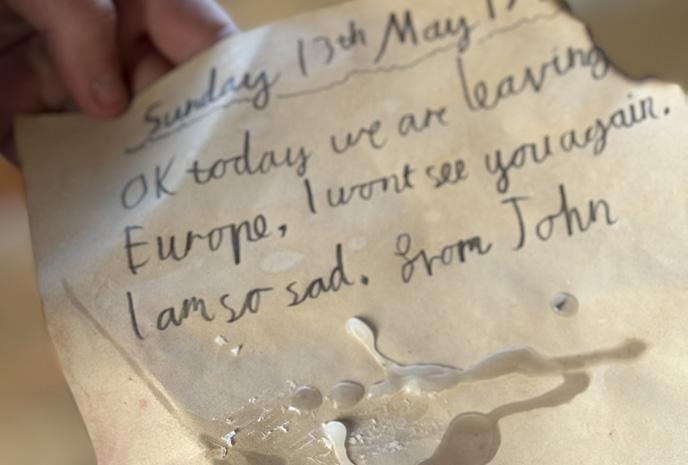 Sunday 13th May 19
OK today we are leaving
Europe, I wont see you again.
I am so sad. from John